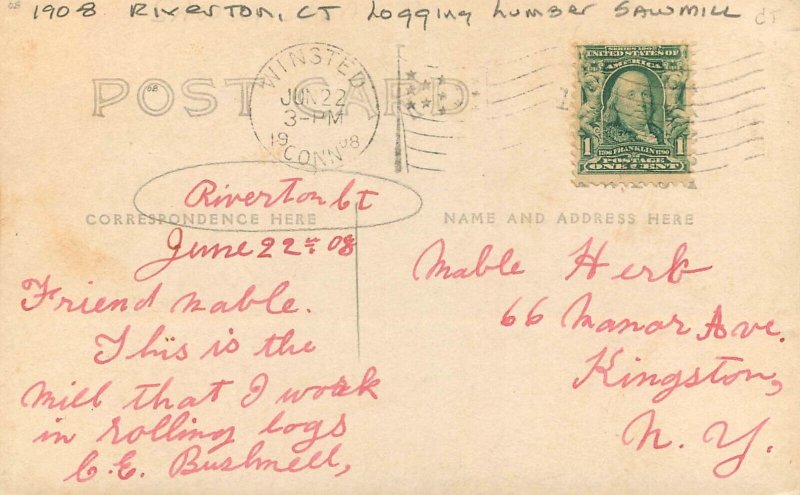 1908 RIVERTON, CT Logging Lumber SAWMILL
POST CARD
WINSTED
JUN 22
3-PM
1908
CONN
SERIES 1902
UNITED STATES OF
AMERICA
1 1
1706 FRANKLIN 1790
POSTAGE
ONE CENT
Riverton Ct
CORRESPONDENCE HERE
June 22nd 08
Friend Mable.
This is the
mill that I work
in rolling logs
C.E. Bushnell,
NAME AND ADDRESS HERE
Mable Herb
66 Manor Ave.
Kingston,
N. Y.